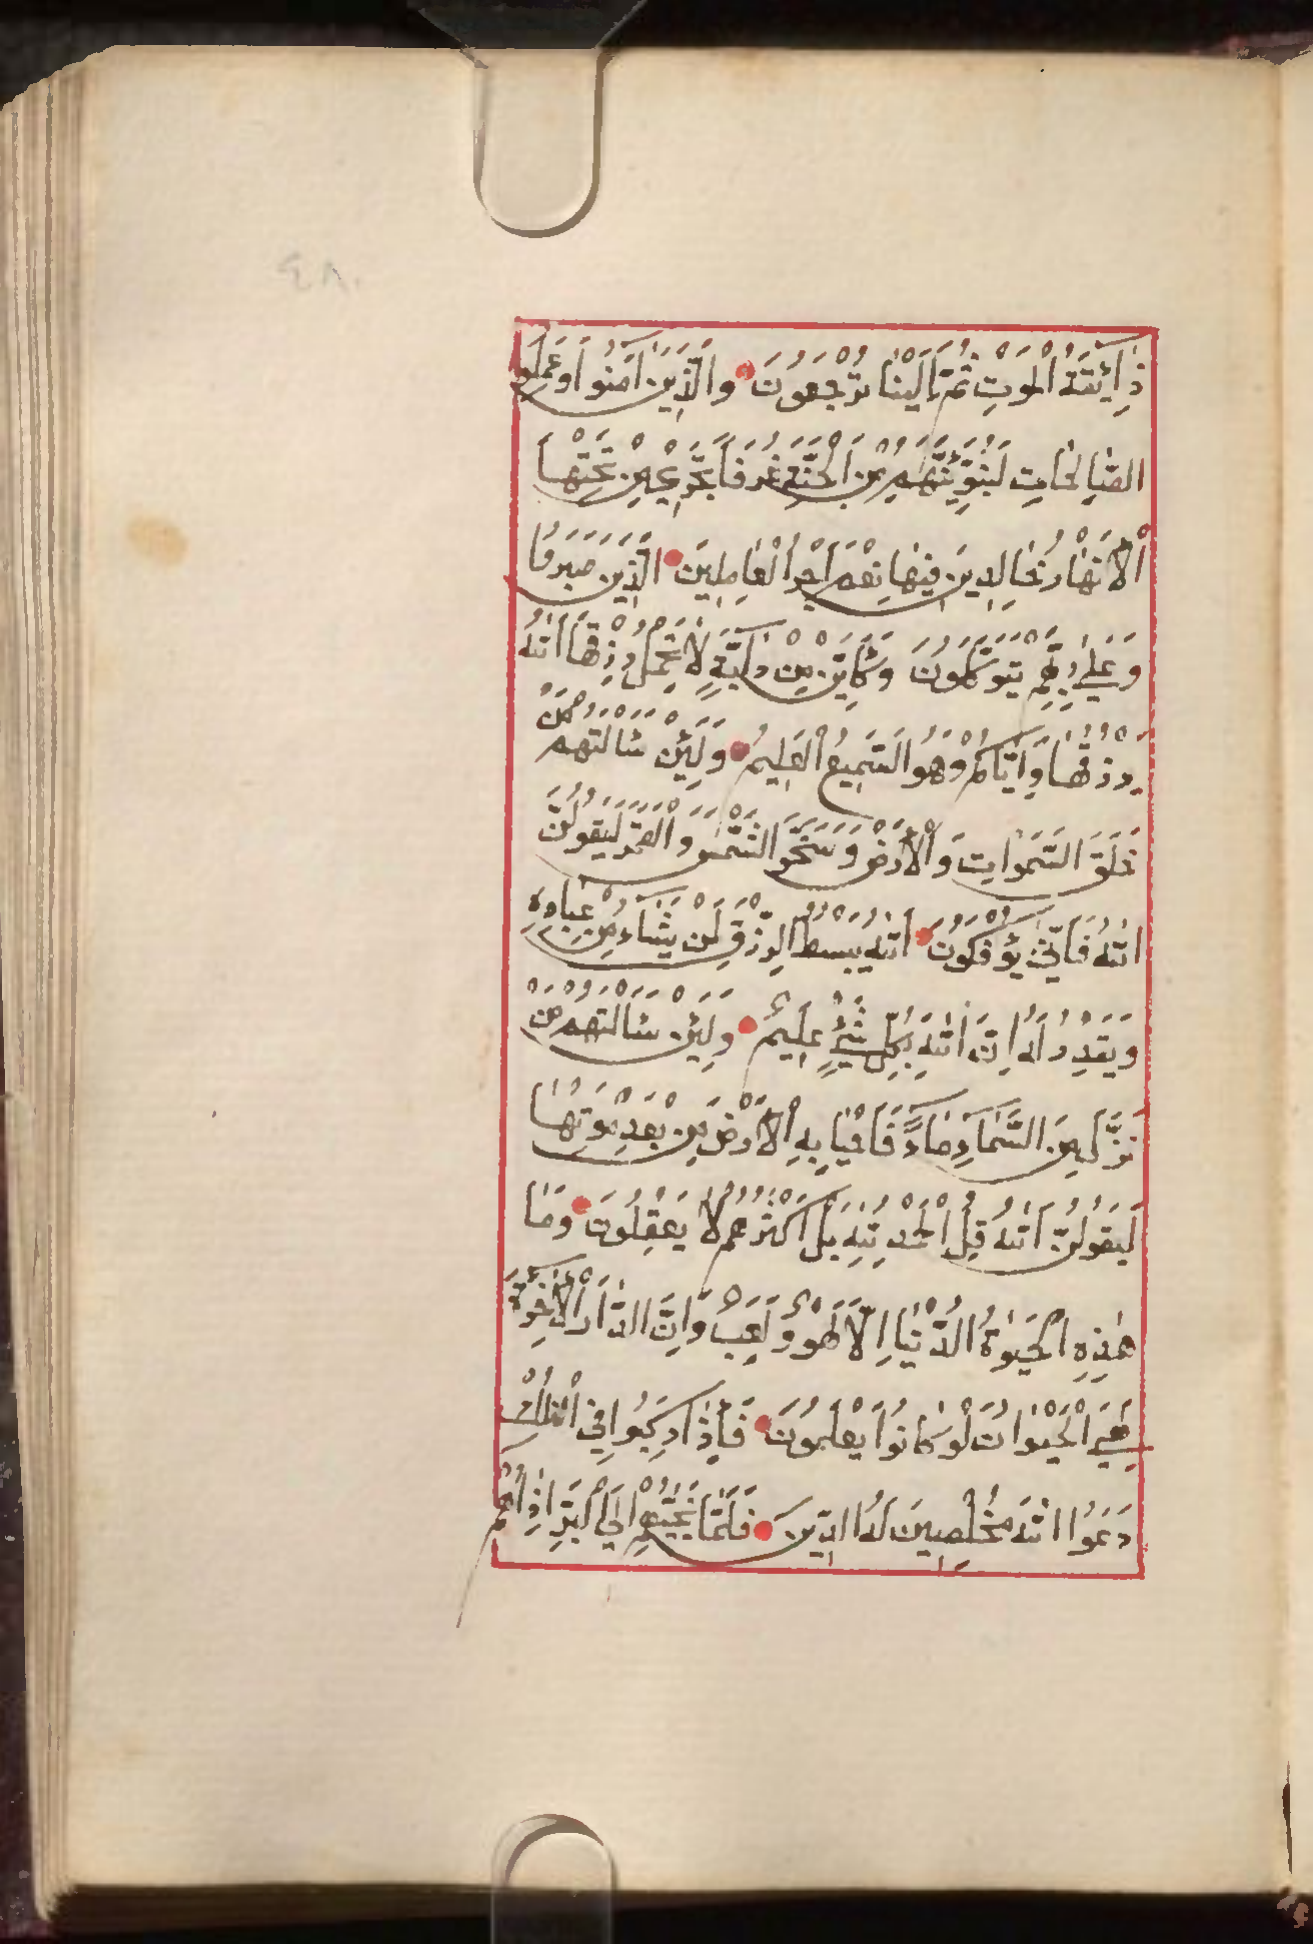 ٤٨٠
ذَٓائِقَةُ الْمَوْتِ ثُمَّ اِلَيْنَا تُرْجَعُونَ وَالَّذِينَ اٰمَنُوا وَعَمِلُوا
الصَّالِحَاتِ لَنُبَوِّئَنَّهُمْ مِنَ الْجَنَّةِ غُرَفًا تَجْرِي مِنْ تَحْتِهَا
الْاَنْهَارُ خَالِدِينَ فِيهَا نِعْمَ اَجْرُ الْعَامِلِينَ الَّذِينَ صَبَرُوا
وَعَلٰى رَبِّهِمْ يَتَوَكَّلُونَ وَكَاَيِّنْ مِنْ دَابَّةٍ لَا تَحْمِلُ رِزْقَهَا اَللّٰهُ
يَرْزُقُهَا وَاِيَّاكُمْ وَهُوَ السَّمِيعُ الْعَلِيمُ وَلَئِنْ سَاَلْتَهُمْ مَنْ
خَلَقَ السَّمٰوَاتِ وَالْاَرْضَ وَسَخَّرَ الشَّمْسَ وَالْقَمَرَ لَيَقُولُنَّ
اللّٰهُ فَاَنّٰى يُؤْفَكُونَ اَللّٰهُ يَبْسُطُ الرِّزْقَ لِمَنْ يَشَاءُ مِنْ عِبَادِهِ
وَيَقْدِرُ لَهُ اِنَّ اللّٰهَ بِكُلِّ شَيْءٍ عَلِيمٌ وَلَئِنْ سَاَلْتَهُمْ مَنْ
نَزَّلَ مِنَ السَّمَاءِ مَاءً فَاَحْيَا بِهِ الْاَرْضَ مِنْ بَعْدِ مَوْتِهَا
لَيَقُولُنَّ اللّٰهُ قُلِ الْحَمْدُ لِلّٰهِ بَلْ اَكْثَرُهُمْ لَا يَعْقِلُونَ وَمَا
هٰذِهِ الْحَيٰوةُ الدُّنْيَا اِلَّا لَهْوٌ وَلَعِبٌ وَاِنَّ الدَّارَ الْاٰخِرَةَ
لَهِيَ الْحَيَوَانُ لَوْ كَانُوا يَعْلَمُونَ فَاِذَا رَكِبُوا فِي الْفُلْكِ
دَعَوُا اللّٰهَ مُخْلِصِينَ لَهُ الدِّينَ فَلَمَّا نَجّٰيهُمْ اِلَى الْبَرِّ اِذَا هُمْ